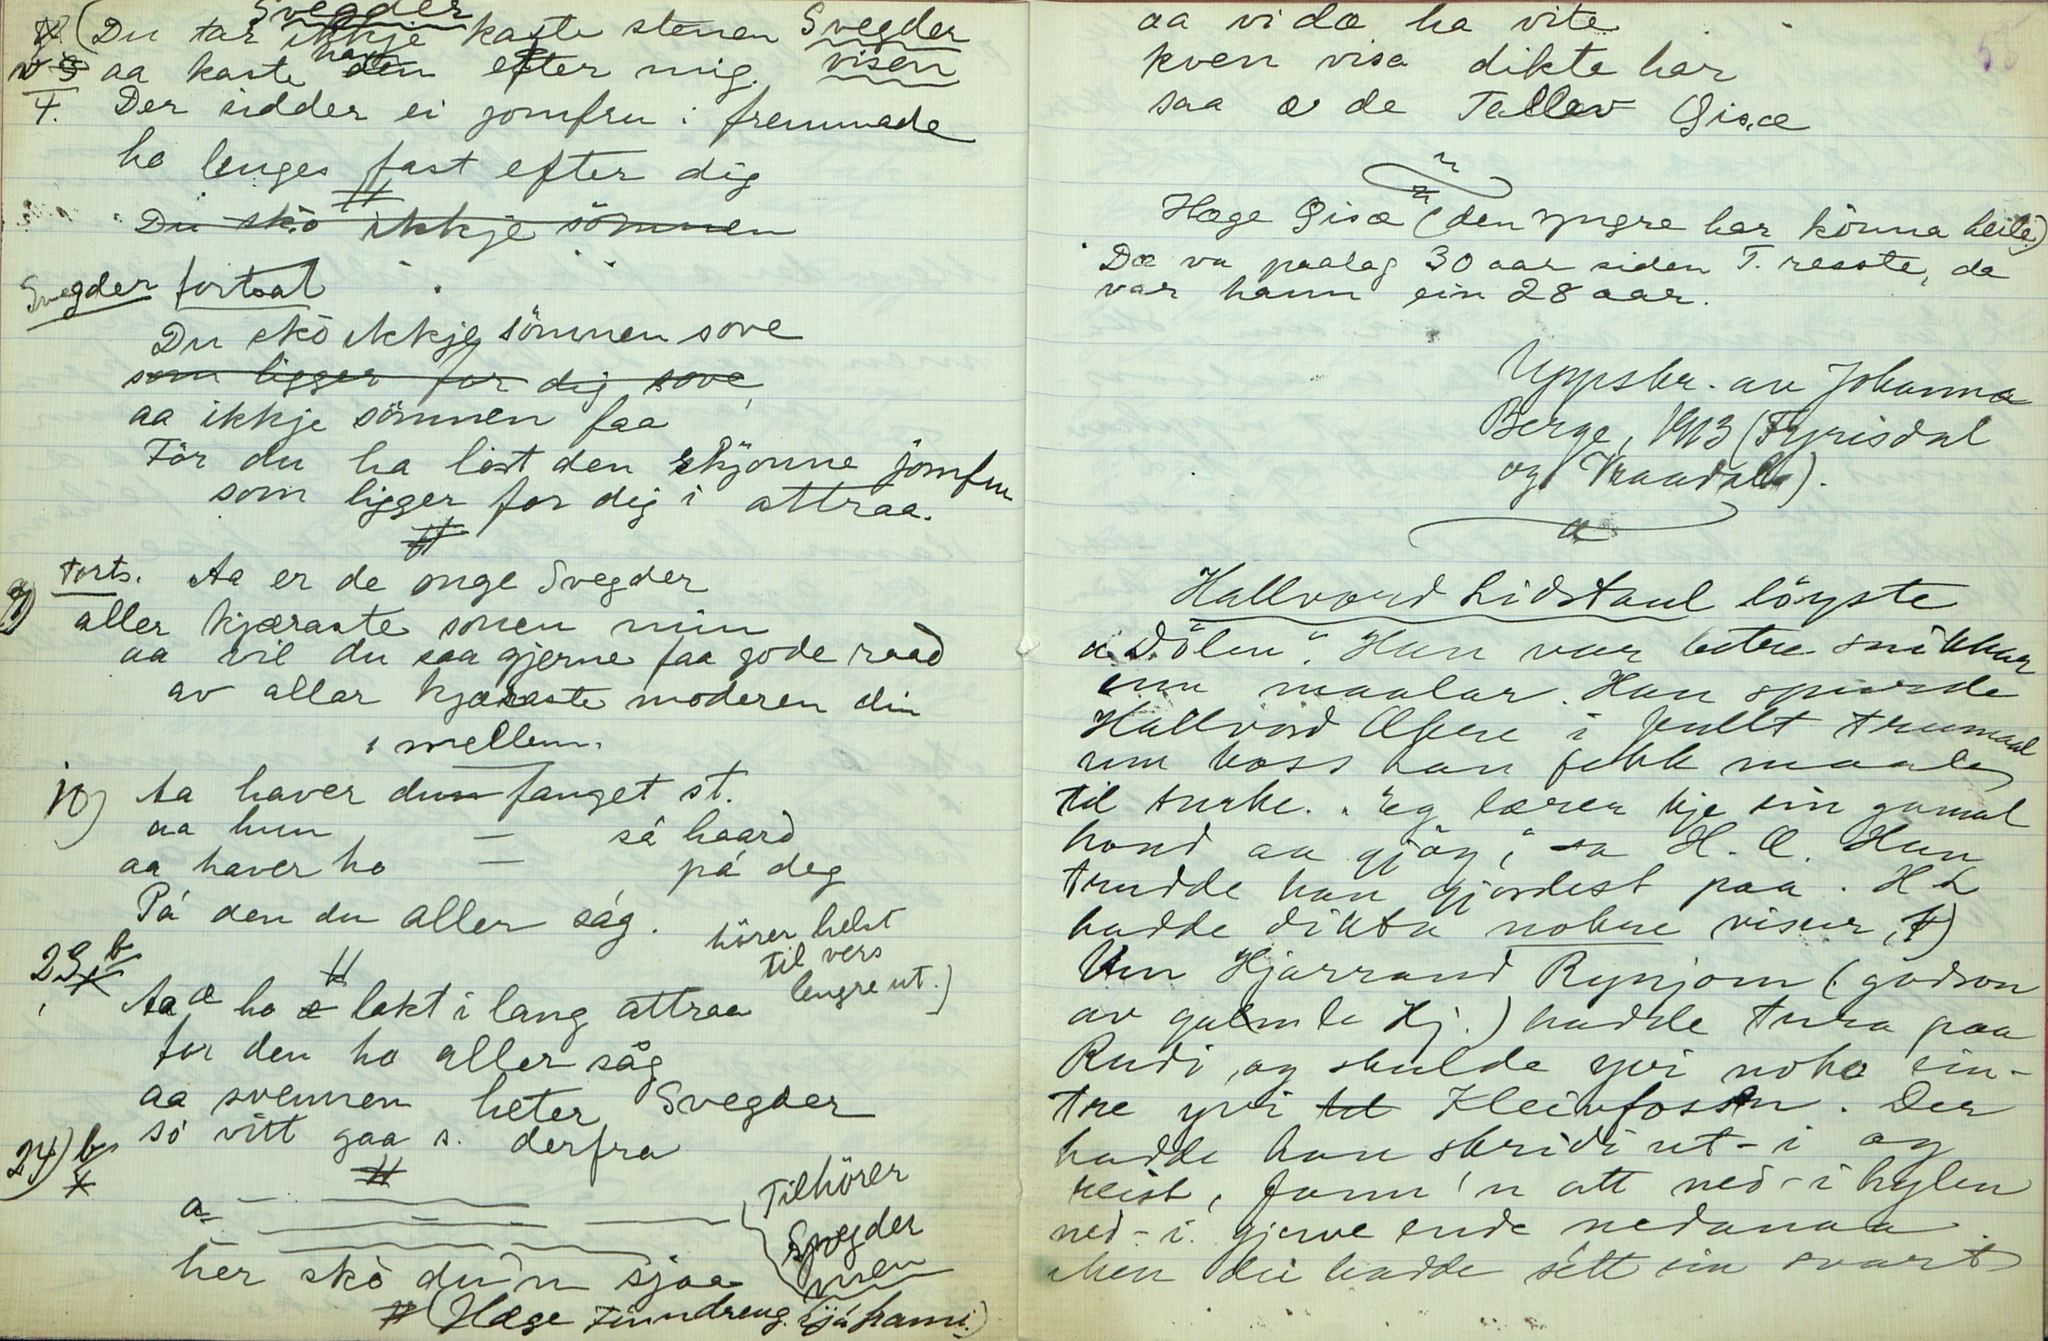 Svegder
(Du tar ikkje kaste stenen Svegder
aa kaste den efter mig. visen
Der sidder ei jomfru i fremmade
ho lenges fast efter dig
Du skò ikkje sömnen
Svegder fortsat
Du skò ikkje sömnen sove
som ligger for dig sove
aa ikkje sömnen faa
För du ha löst den skjönne jomfru
som ligger for dig i attraa.
9) Forts. Aa er de onge Svegder
aller kjæraste sonen min
aa vil du saa gjerne faa gode raad
av allar kjæraste moderen din
i mellem.
10) Aa haver du fanget st.
aa hun — så haard
aa haver ho — på deg
På den du aller såg.
hörer helst
til vers
lengre ut.)
23 b
Aa æ ho lekt i lang attraa
for den ho aller såg
aa svennen heter Svegder
sò vitt gaa s. derfra
24) b
a
her skò du'n sjaa
Tilhörer
Svegder
visen
(Hæge Finndreng. hjá hami.)
aa vi dæ ha vite
kven visa dikte har
saa æ de Tallev Gisæ
Hæge Gisæ (den yngre har könna heile)
Dæ va paalag 30 aar siden T. resste, da
var hann ein 28 aar.
Uppskr. av Johanna
Berge, 1913 (Fyrisdal
og Vraadal).
Hallvord Lidstaul löyste
"Dölen". Han var betre snikkar
enn maalar. Han spurde
Hallvord Æfere i fullt trumaal
um koss han fekk maaling
til turke. "Eg lærer kje ein gamal
hond aa gjöy," sa H. Æ. Han
trudde han gjordest paa. H L
hadde dikta nokre visur, †)
Um Hjarrand Rynjom (godson
av gamle Hj.) hadde tura paa
Rudi, og skulde yvi noko ein-
tre yvi Kleivfossen. Der
hadde han skridi ut-i og
reist, fann'n att ned-i hylen
ned-i gjerve ende nedanaa
Men dei hadde sétt ein svart